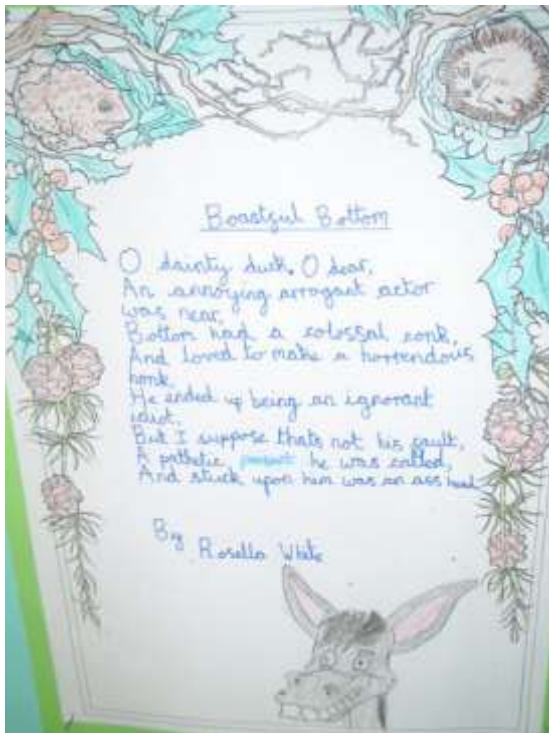 Boastful Bottom
O dainty duck, O dear,
An annoying arrogant actor
was near,
Bottom had a colossal conk,
And loved to make a horrendous
honk.
He ended up being an ignorant
idiot,
But I suppose thats not his fault,
A pathetic peasant he was called,
And stuck upon him was an ass head
By
Rosella White